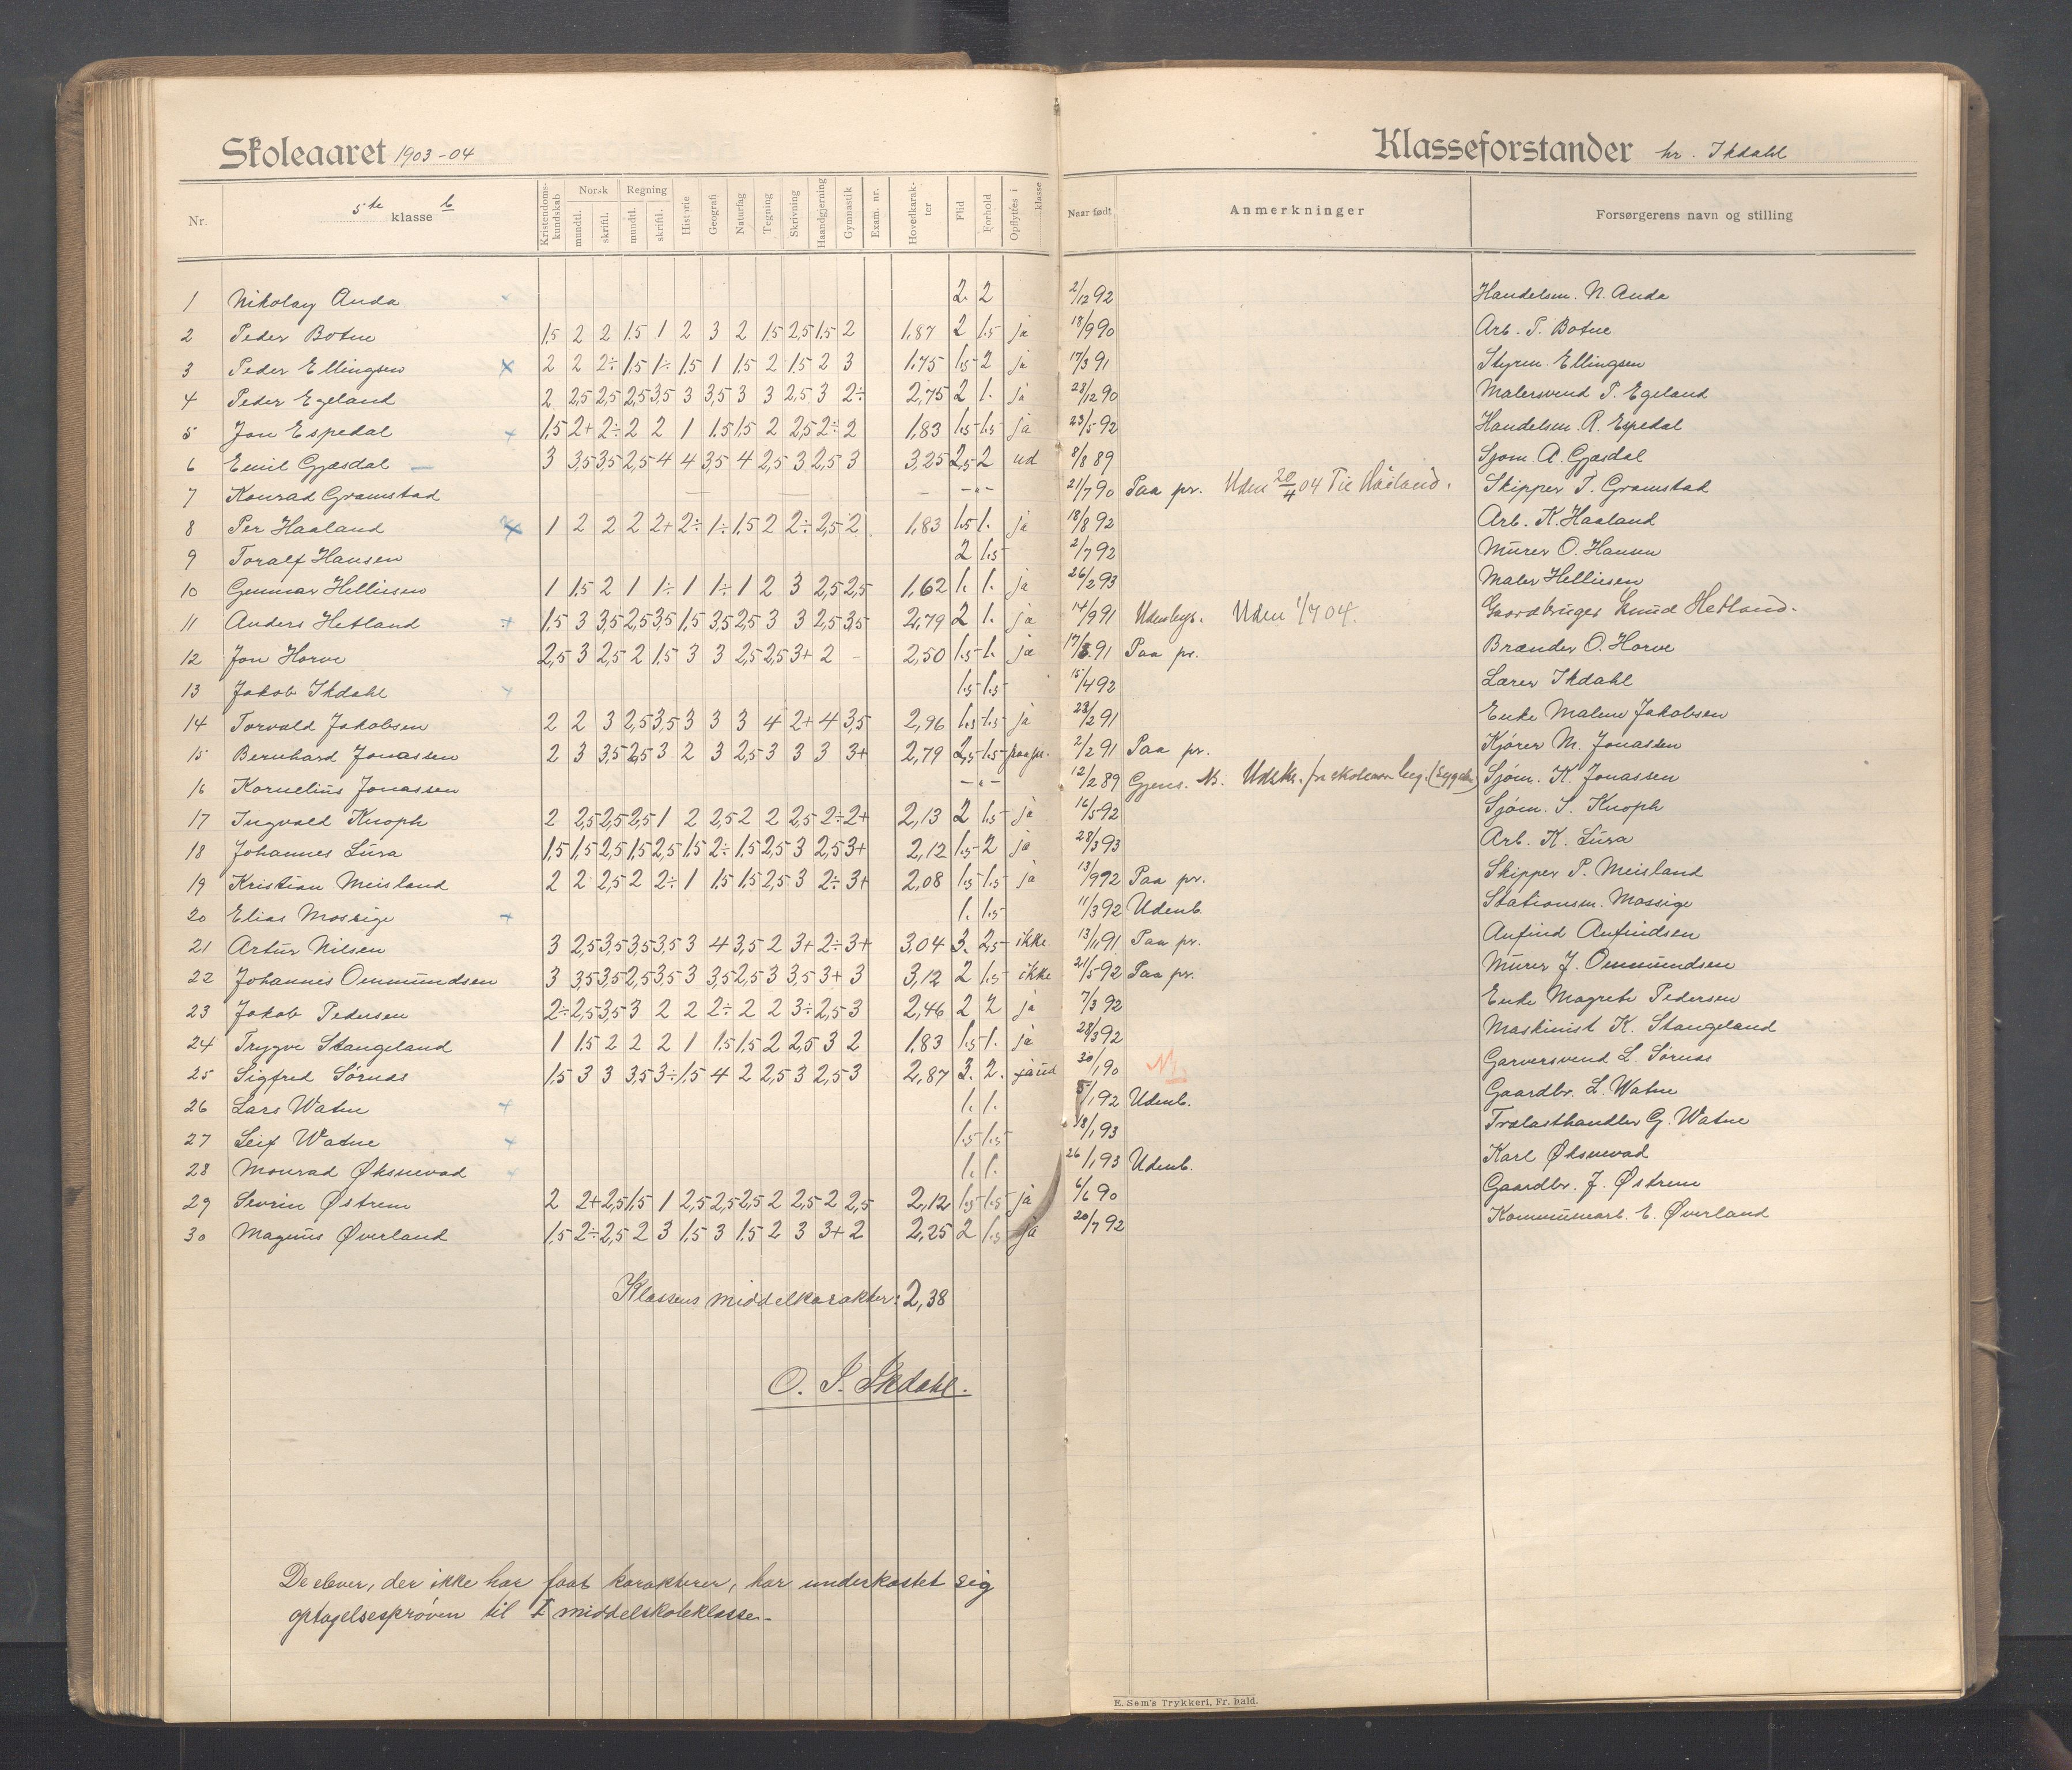 Skoleaaret 1903-04
Klasseforstander hr. Ikdahl
Nr. 5te klasse b Kristendoms-kundskab Norsk mundtl. skriftl. Regning mundtl. skriftl. Historie Geografi Naturfag Tegning Skrivning Haandgjerning Gymnastik Exam. nr. Hovedkarakter Flid Forhold Opflyttes i klasse Naar født Anmerkninger Forsørgerens navn og stilling
1 Nikolay Anda 2. 2 2/12 92 Handelsm. N. Anda
2 Peder Botne 1,5 2 2 1,5 1 2 3 2 1,5 2,5 1,5 2 1,87 2 1.5 ja 18/9 90 Arb. P. Botne
3 Peder Ellingsen x 2 2 2÷ 1,5 1÷ 1,5 1 1,5 2 1,5 2 3 1,75 1.5 2 ja 17/3 91 Styrm. Ellingsen
4 Peder Egeland 2 2,5 2,5 2,5 3,5 3 3,5 3 3 2,5 3 2÷ 2,75 2 1. ja 28/12 90 Malersvend P. Egeland
5 Jon Espedal + 1,5 2+ 2÷ 2 2 1 1.5 1,5 2 2,5 2÷ 2 1,83 1.5 1.5 ja 23/5 92 Handelsm. R. Espedal
6 Emil Gjæsdal — 3 3,5 3,5 2,5 4 4 3,5 4 2,5 3 2,5 3 3,25 2,5 2 ud 8/8 89 Sjøm. A. Gjæsdal
7 Konrad Gramstad — — — " — 21/7 90 Paa pr. Uden 20/4 04 Til Håland. Skipper T. Gramstad
8 Per Haaland x 1 2 2 2 2+ 2÷ 1÷ 1,5 2 2÷ 2,5 2 1,83 1.5 1. ja 18/8 92 Arb. K. Haaland
9 Toralf Hansen 2 1.5 2/7 92 Murer O. Hansen
10 Gunnar Helliesen 1 1,5 2 1 1÷ 1 1÷ 1 2 3 2,5 2,5 1,62 1. 1. ja 26/2 93 Maler Helliesen
11 Anders Hetland + 1,5 3 3,5 2,5 3,5 1,5 3,5 2,5 3 3 2,5 3,5 2,79 2 1. ja 14/9 91 Udenbys. Uden 1/7 04. Gaardbruger Knud Hetland.
12 Jon Horve 2,5 3 2,5 2 1,5 3 3 2,5 2,5 3+ 2 – 2,50 1.5 1. ja 17/8 91 Paa pr. Brænder O. Horve
13 Jakob Ikdahl + 1.5 1.5 15/4 92 Lærer Ikdahl
14 Torvald Jakobsen 2 2 3 2,5 3,5 3 3 3 4 2+ 4 3,5 2,96 1.5 1.5 ja 28/2 91 Enke Malene Jakobsen
15 Bernhard Jonassen 2 3 3,5 2,5 3 2 3 2,5 3 3 3 3+ 2,79 2,5 1.5 paa pr. 2/2 91 Paa pr. Kjører M. Jonassen
16 Kornelius Jonassen — " — 12/2 89 Gjens. Udskr. fra skolen Sjøm. K. Jonassen
17 Ingvald Knoph 2 2,5 2,5 2,5 1 2 2,5 2 2 2,5 2÷ 2+ 2,13 2 1.5 ja 16/5 92 Sjøm. S. Knoph
18 Johannes Lura 1,5 1,5 2,5 1,5 2,5 1,5 2÷ 1,5 2,5 3 2,5 3+ 2,12 1.5 2 ja 28/3 93 Arb. K. Lura
19 Kristian Meisland 2 2 2,5 2 2÷ 1 1,5 1,5 2,5 3 2÷ 3+ 2,08 1.5 1.5 ja 13/9 92 Paa pr. Skipper P. Meisland
20 Elias Mossige + 1. 1.5 11/3 92 Udenb. Stationsm. Mossige
21 Artur Nilsen 3 2,5 3,5 3,5 3,5 3 4 3,5 2 3+ 2÷ 3+ 3,04 3. 2,5 ikke 13/1 91 Paa pr. Anfind Anfindsen
22 Johannes Ommundsen 3 3,5 3,5 2,5 3,5 3 3,5 2,5 3 3,5 3+ 3 3,12 2 1.5 ikke 21/5 92 Paa pr. Murer J. Ommundsen
23 Jakob Pedersen 2÷ 2,5 3,5 3 2 2 2÷ 2 2 3÷ 2,5 3 2,46 2 2 ja 7/3 92 Enke Magrete Pedersen
24 Trygve Stangeland 1 1,5 2 2 2 1 1,5 1,5 2 2,5 3 2 1,83 1.5 1. ja 28/3 92 Maskinist K. Stangeland
25 Sigfred Sørnæs 1,5 3 3 3,5 3÷ 1,5 4 2 2,5 3 2,5 3 2,87 3. 2. ja ud 30/1 90 Garversvend L. Sørnæs
26 Lars Watne + 1. 1. 5/1 92 Udenb. Gaardbr. L. Watne
27 Leif Watne + 1.5 1.5 18/1 93 Trælasthandler G. Watne
28 Monrad Øksnevad 1. 1. 26/1 93 Udenb. Karl Øksnevad
29 Sevrin Østrem 2 2+ 2,5 1,5 1 2,5 2,5 2,5 2 2,5 2 2,5 2,12 1.5 1.5 ja 6/6 90 Gaardbr. J. Østrem
30 Magnus Øverland 1,5 2÷ 2,5 2 3 1,5 3 1,5 2 3 3+ 2 2,25 2 1.5 ja 20/7 92 Kommunearb. E. Øverland
Klassens middelkarakter: 2,38
O. S. Ikdahl.
De elever, der ikke har faat karakterer, har underkastet sig
optagelsesprøven til I middelskoleklasse.
E. Sem's Trykkeri, Fr. hald.